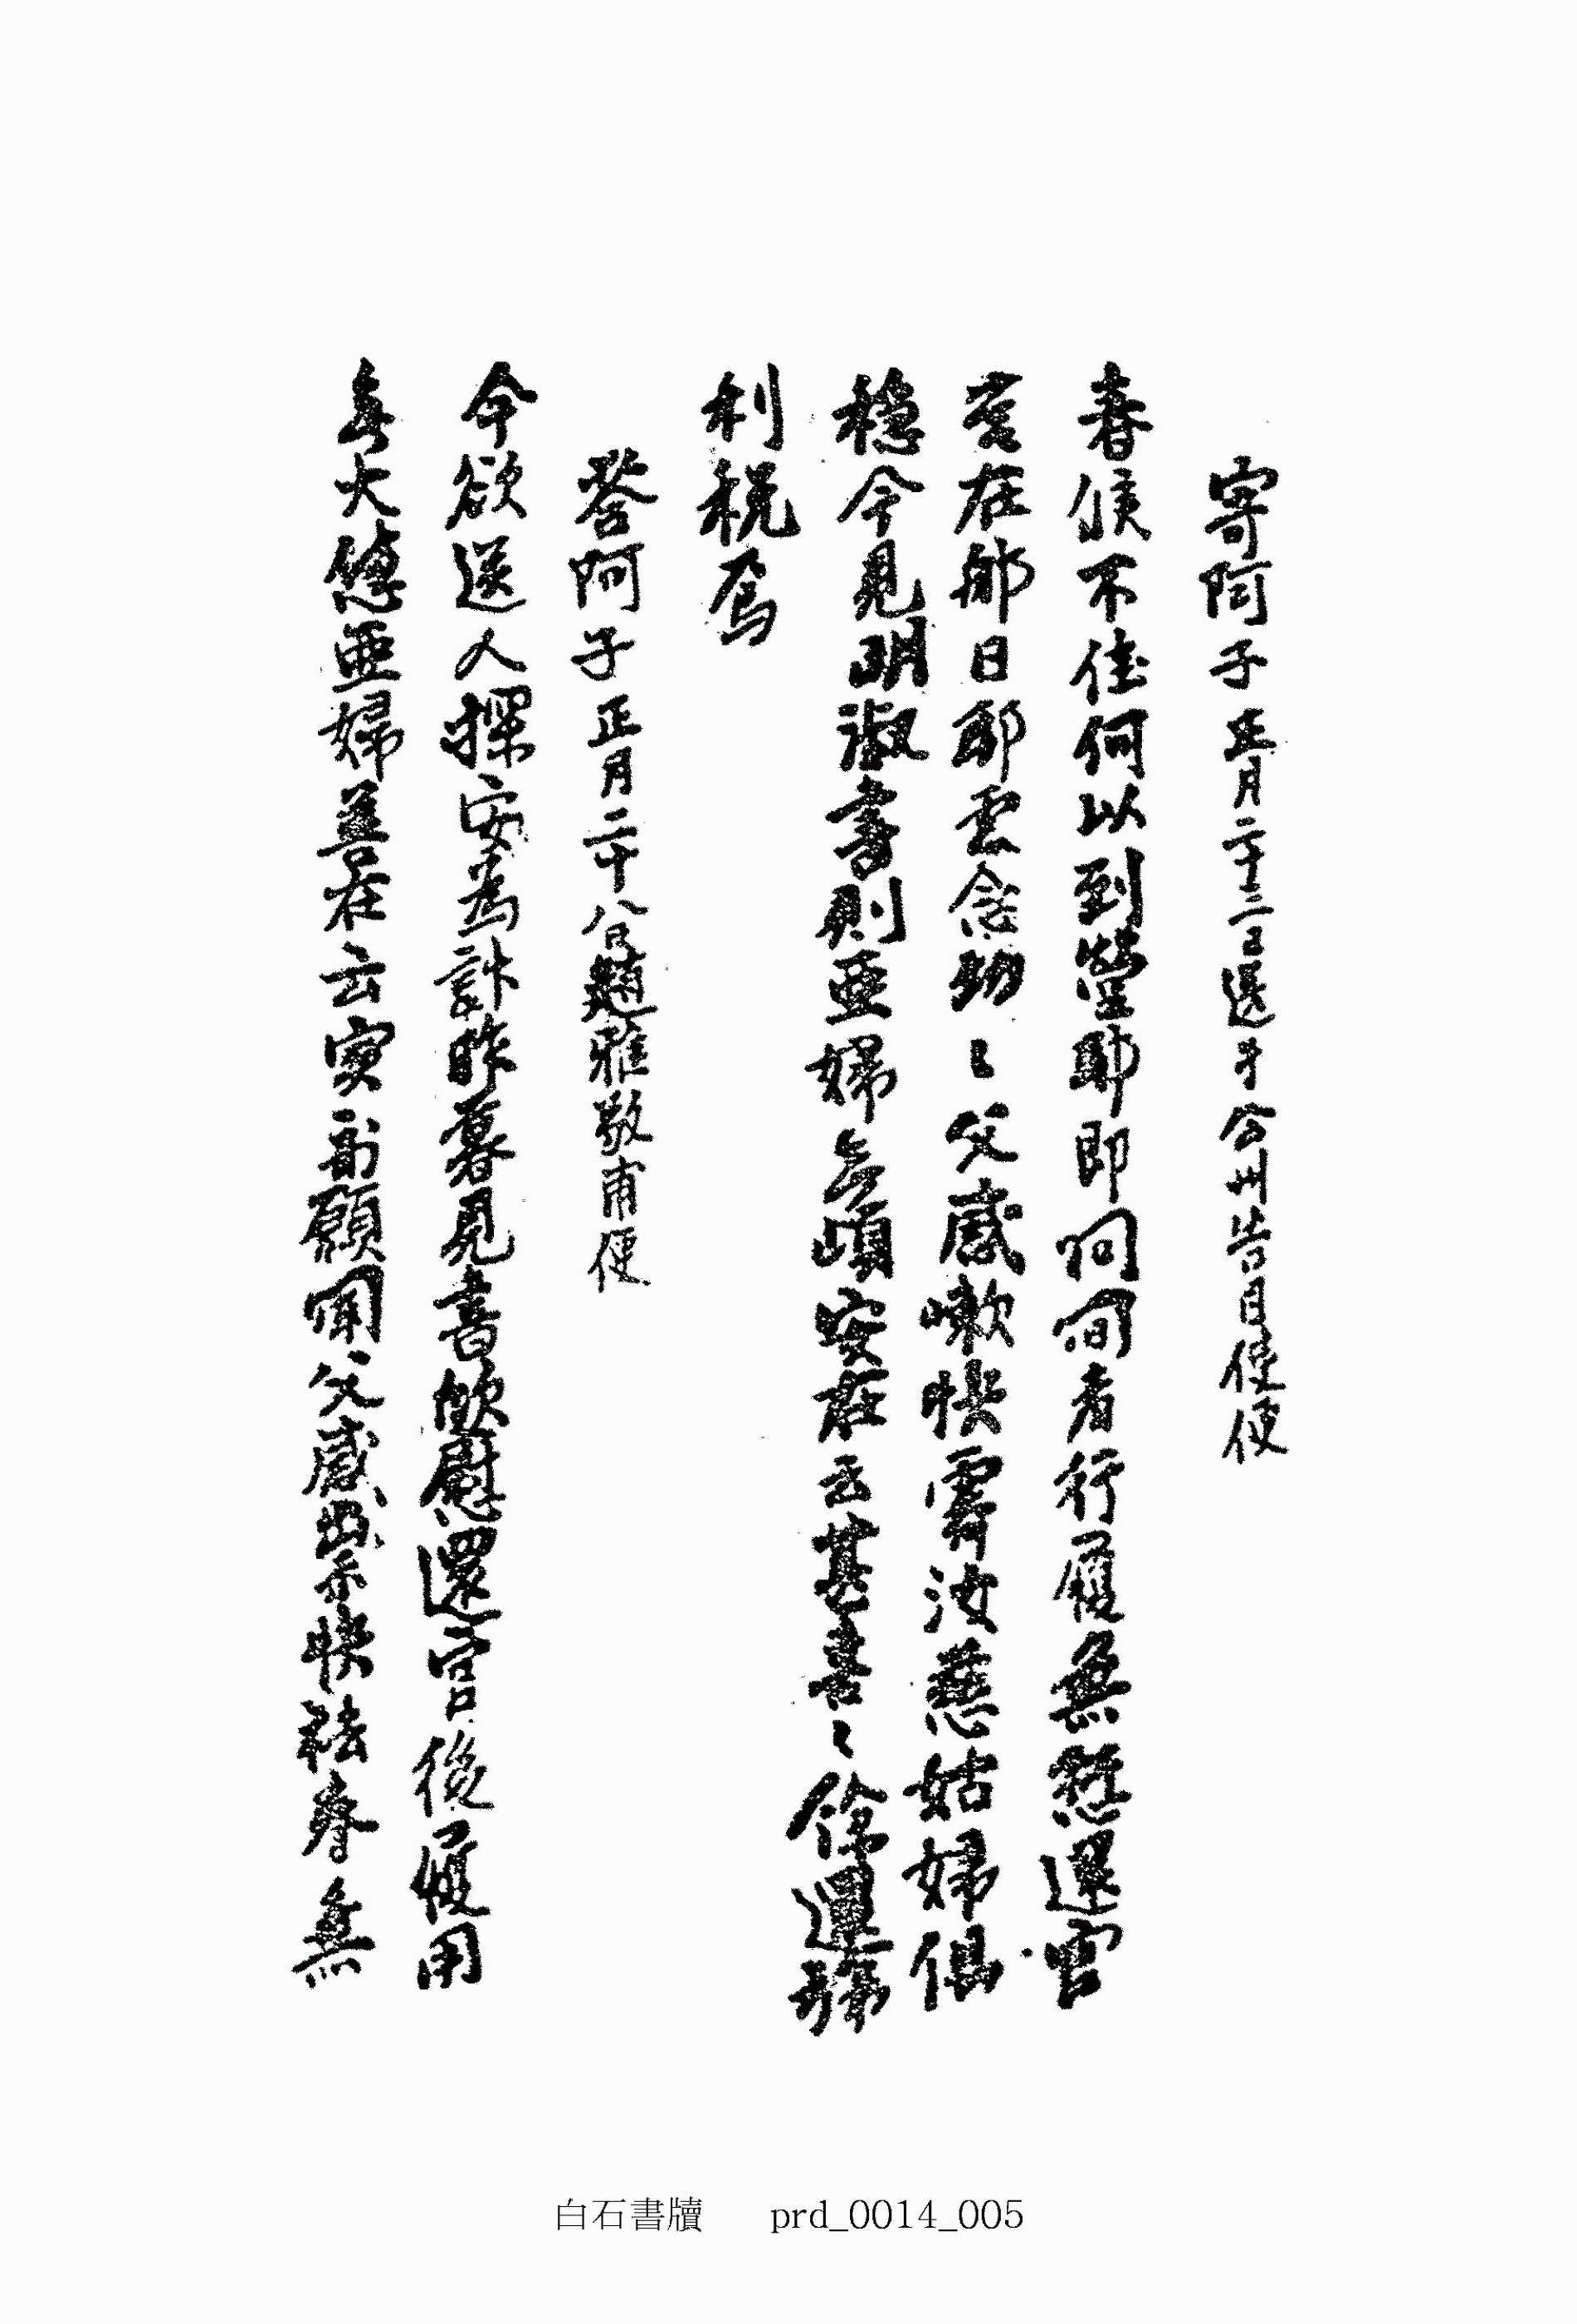 寄阿子 正月二十三日還 公州告目使便
春候不佳何以到營耶即問間者行履無愆還官
當在那日耶雲念切〻父感嗽快霽汝慈姑婦俱
穩今見明淑書則亞婦無頉安在云甚喜〻餘還駕
利稅焉
答阿子 正月二十八日趙雅敬甫便
今欲送人探安爲計昨暮見書欣慰還官後履用
無大愆亞婦善在云實副願聞父感祟快祛眷無
白石書牘 prd_0014_005